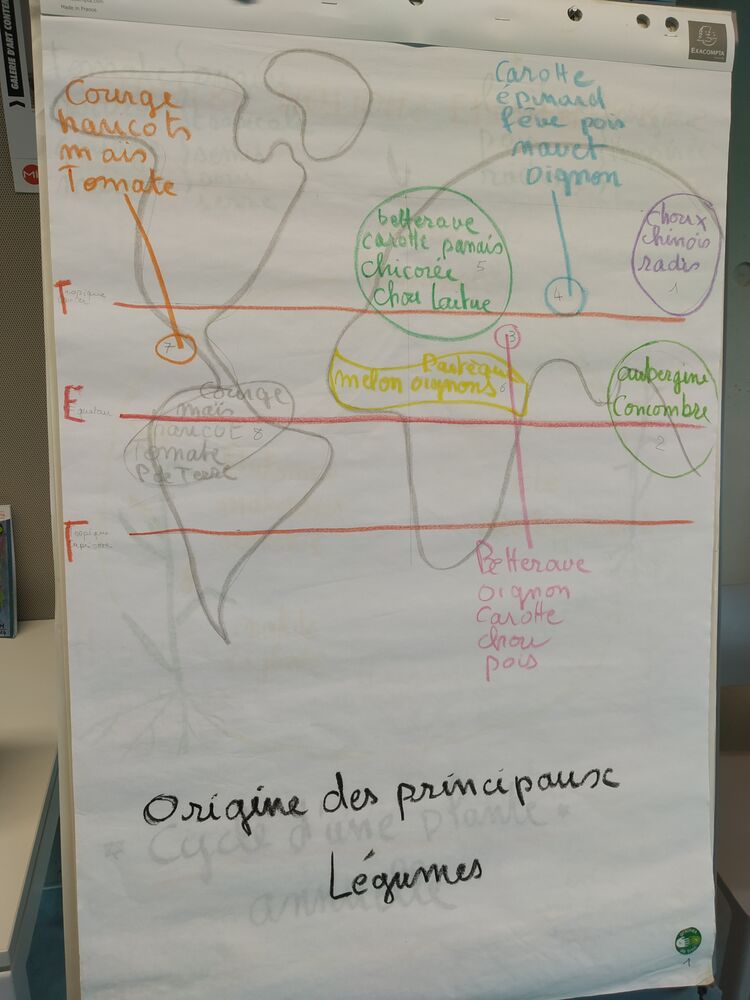 Made in France.
EXACOMPTA
GALERIE D'ART CONTEM
Courge
haricots
mais
Tomate
Carotte
épinard
fève pois
navet
oignon
betterave
carotte panais
chicorée 5
chou laitue
choux
chinois
radis
1
4
Tropique
3
7
Pastèque
melon oignons 6
aubergine
Concombre
2
Equateur
Courge
mais
haricot 8
Tomate
P de Terre
Tropique
Betterave
oignon
Carotte
chou
pois
Origine des principaux
Légumes
* Cycle d'une plante *
annuelle
1